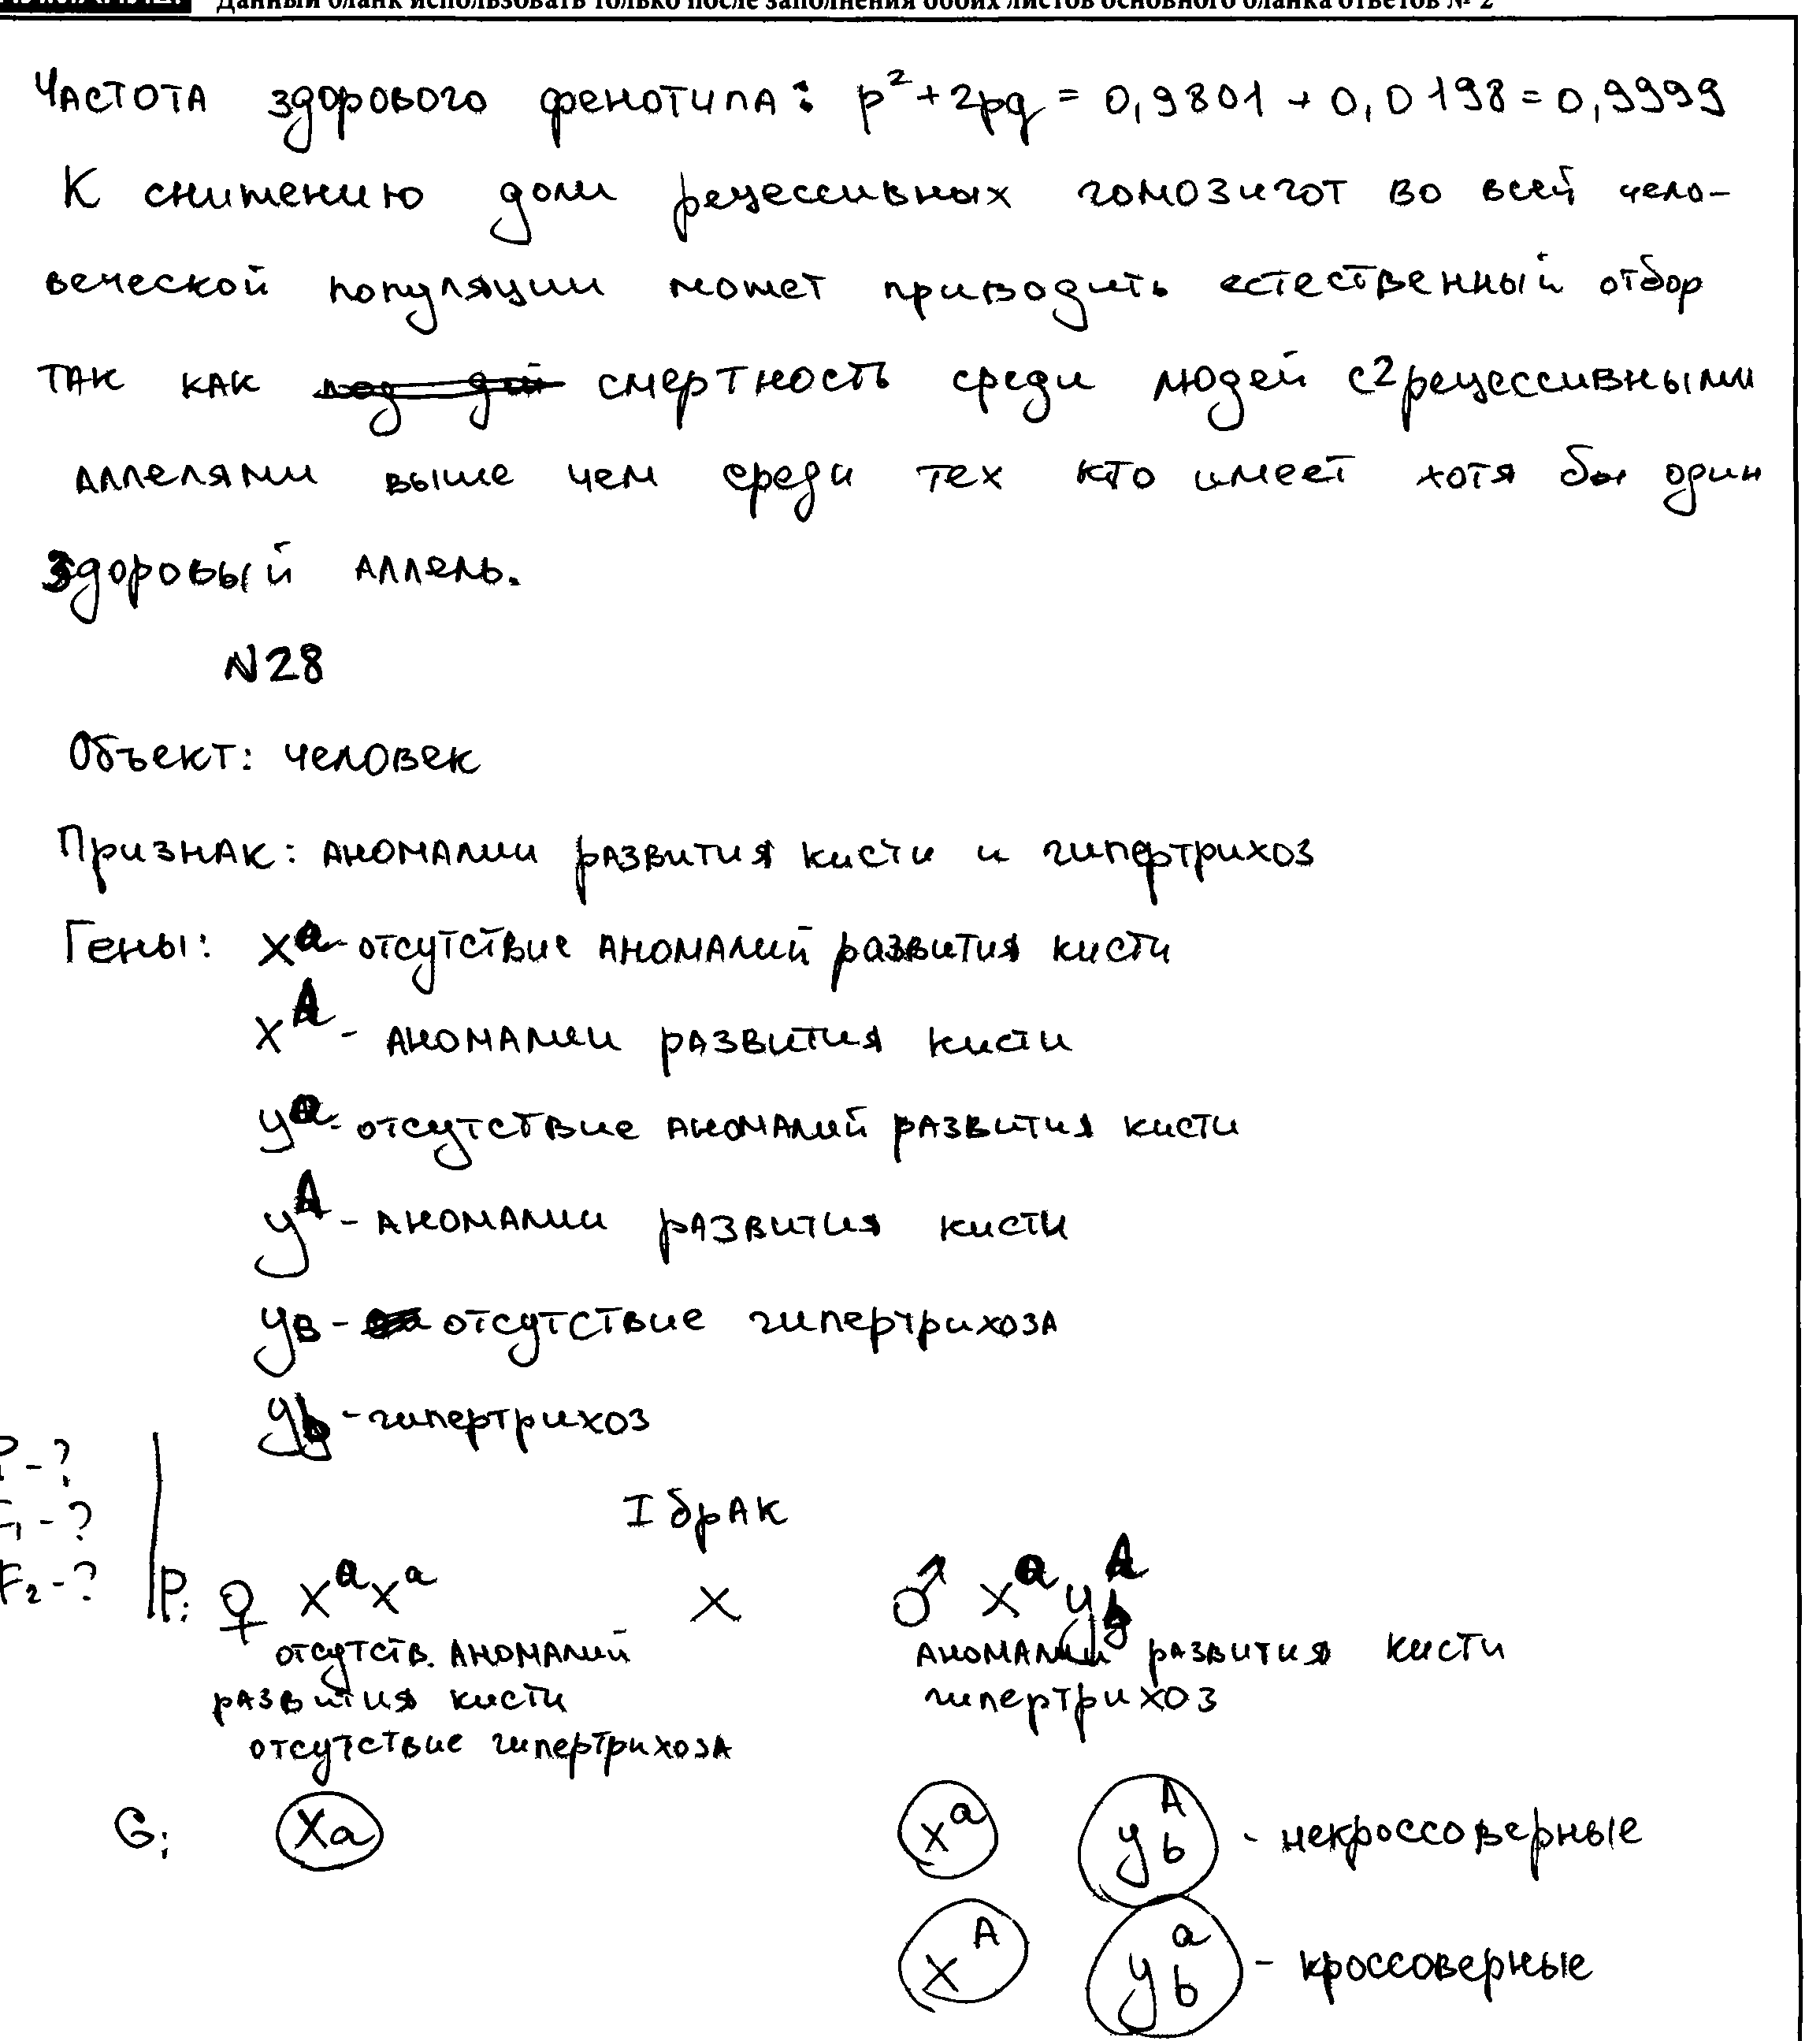 Данный бланк использовать только после заполнения обоих листов основного бланка ответов № 2
Частота здорового фенотипа: p²+2pq = 0,9801 + 0,0198 = 0,9999
К снижению доли рецессивных гомозигот во всей чело-
веческой популяции может приводить естественный отбор
так как смертность среди людей с 2 рецессивными
аллелями выше чем среди тех кто имеет хотя бы один
здоровый аллель.
N28
Объект: человек
Признак: аномалии развития кисти и гипертрихоз
Гены: Xᵃ - отсутствие аномалий развития кисти
Xᴬ - аномалии развития кисти
yᵃ - отсутствие аномалий развития кисти
yᴬ - аномалии развития кисти
yB - отсутствие гипертрихоза
yb - гипертрихоз
P - ?
F₁ - ?
F₂ - ?
I брак
P: ♀ XᵃXᵃ × ♂ Xᵃyᴬb
отсутств. аномалий развития кисти отсутствие гипертрихоза
аномалии развития кисти гипертрихоз
G: Xa Xᵃ yᴬb - некроссоверные
Xᴬ yᵃb - кроссоверные